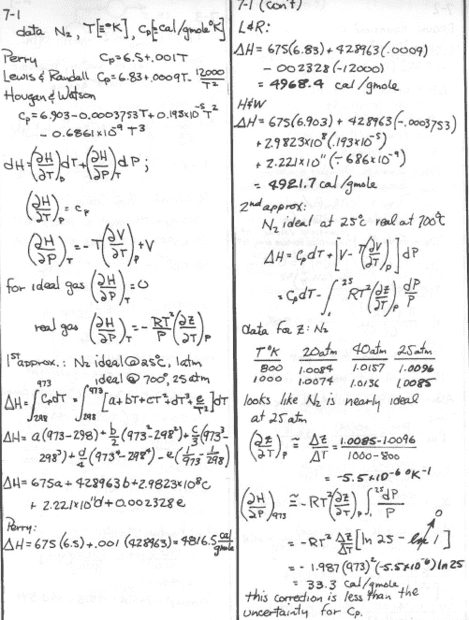 7-1
data N₂, T[≡°K], Cp[≡cal/gmole°K]
Perry Cp=6.5+.001T
Lewis & Randall Cp=6.83+.0009T-12000/T²
Hougen & Watson
Cp=6.903-0.0003753T+0.193x10⁻⁵T²
- 0.6861x10⁻⁹ T³
dH=(∂H/∂T)p dT+(∂H/∂P)T dP;
(∂H/∂T)p = cp
(∂H/∂P)T = -T(∂V/∂T)p+V
for ideal gas (∂H/∂P)T=0
real gas (∂H/∂P)T=-RT²/P (∂z/∂T)p
1st approx.: N₂ ideal @25°C, 1atm
ideal @ 700°, 25atm
ΔH=∫₂₉₈⁹⁷³CpdT=∫₂₉₈⁹⁷³[a+bT+cT²+dT³+e/T²]dT
ΔH=a(973-298)+b/2(973²-298²)+c/3(973³-
298³)+d/4(973⁴-298⁴)-e(1/973-1/298)
ΔH=675a+428963b+2.9823x10⁸c
+2.221x10¹¹d+0.002328e
Perry:
ΔH=675(6.5)+.001(428963)=4816.5 cal/gmole
7-1 (con't)
L&R:
ΔH=675(6.83)+428963(.0009)
-.002328(-12000)
= 4968.4 cal/gmole
H&W
ΔH=675(6.903)+428963(-.0003753)
+2.9823x10⁸(.193x10⁻⁵)
+2.221x10¹¹(-.686x10⁻⁹)
= 4921.7 cal/gmole
2nd approx:
N₂ ideal at 25°C real at 700°C
ΔH=CpdT+[V-T(∂V/∂T)p]dP
=CpdT-∫₁²⁵ RT²(∂z/∂T)p dP/P
data for Z: N₂
T°K 20atm 40atm 25atm
800 1.0084 1.0157 1.0096
1000 1.0074 1.0136 1.0085
looks like N₂ is nearly ideal
at 25atm
(∂z/∂T)p ≅ Δz/ΔT = 1.0085-1.0096/1000-800
= -5.5x10⁻⁶ °K⁻¹
(∂H/∂P)₉₇₃ ≅ -RT²(∂z/∂T)p ∫₁²⁵ dP/P
= -RT² Δz/ΔT [ln 25 - ln 1] 0
= -1.987(973)²(-5.5x10⁻⁶) ln25
= 33.3 cal/gmole
this correction is less than the
uncertainty for Cp.